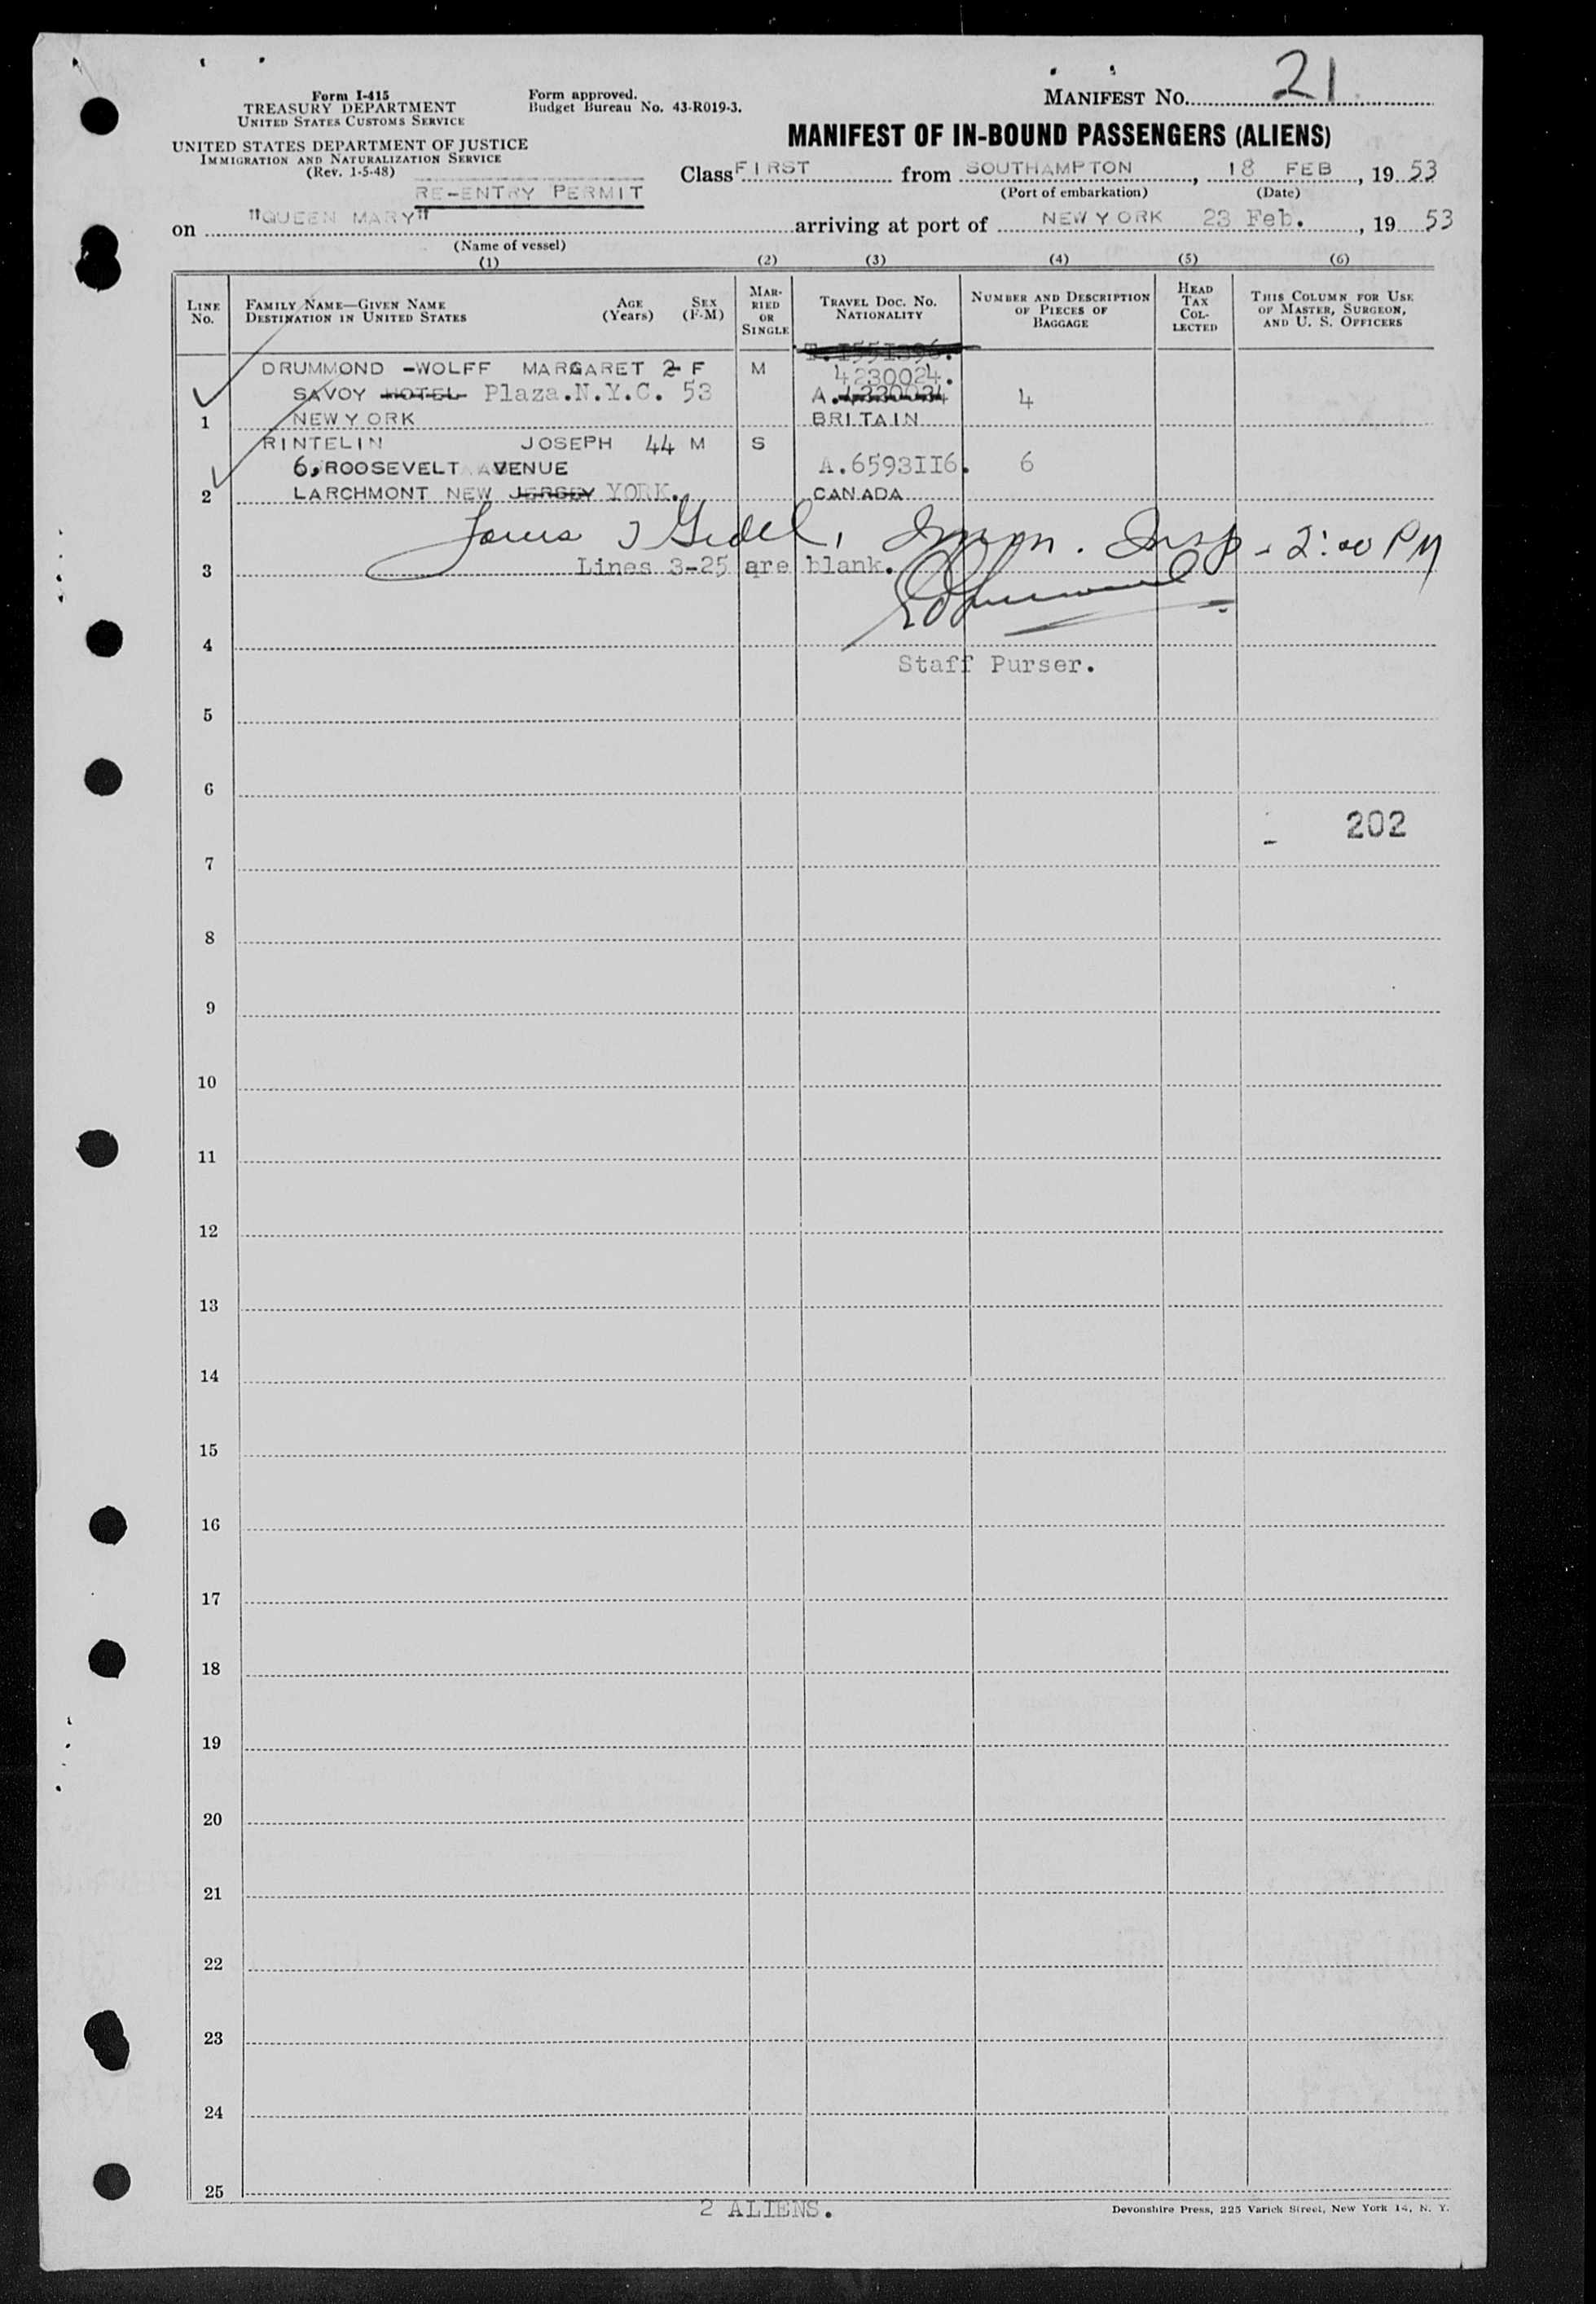 Form I-415
TREASURY DEPARTMENT
UNITED STATES CUSTOMS SERVICE
UNITED STATES DEPARTMENT OF JUSTICE
IMMIGRATION AND NATURALIZATION SERVICE
(Rev. 1-5-48)
Form approved.
Budget Bureau No. 43-R019-3.
MANIFEST NO. 21
MANIFEST OF IN-BOUND PASSENGERS (ALIENS)
Class FIRST from SOUTHAMPTON, 18 FEB, 19 53
(Port of embarkation) (Date)
RE-ENTRY PERMIT
on "QUEEN MARY" arriving at port of NEW YORK 23 Feb., 19 53
(Name of vessel)
(1) (2) (3) (4) (5) (6)
LINE NO.
FAMILY NAME—GIVEN NAME
DESTINATION IN UNITED STATES
AGE (Years)
SEX (F-M)
MARRIED OR SINGLE
TRAVEL DOC. NO. NATIONALITY
NUMBER AND DESCRIPTION OF PIECES OF BAGGAGE
HEAD TAX COLLECTED
THIS COLUMN FOR USE OF MASTER, SURGEON, AND U. S. OFFICERS
DRUMMOND -WOLFF MARGARET 2 F M 4230024.
SAVOY HOTEL Plaza.N.Y.C. 53 A. 4
1 NEW YORK BRITAIN
RINTELIN JOSEPH 44 M S
6, ROOSEVELT AVENUE A.6593116. 6
2 LARCHMONT NEW JERSEY YORK. CANADA
Imm. Insp - 2:00 PM
3 Lines 3-25 are blank.
4
Staff Purser.
5
6
202
7
8
9
10
11
12
13
14
15
16
17
18
19
20
21
22
23
24
25
2 ALIENS.
Devonshire Press, 225 Varick Street, New York 14, N. Y.